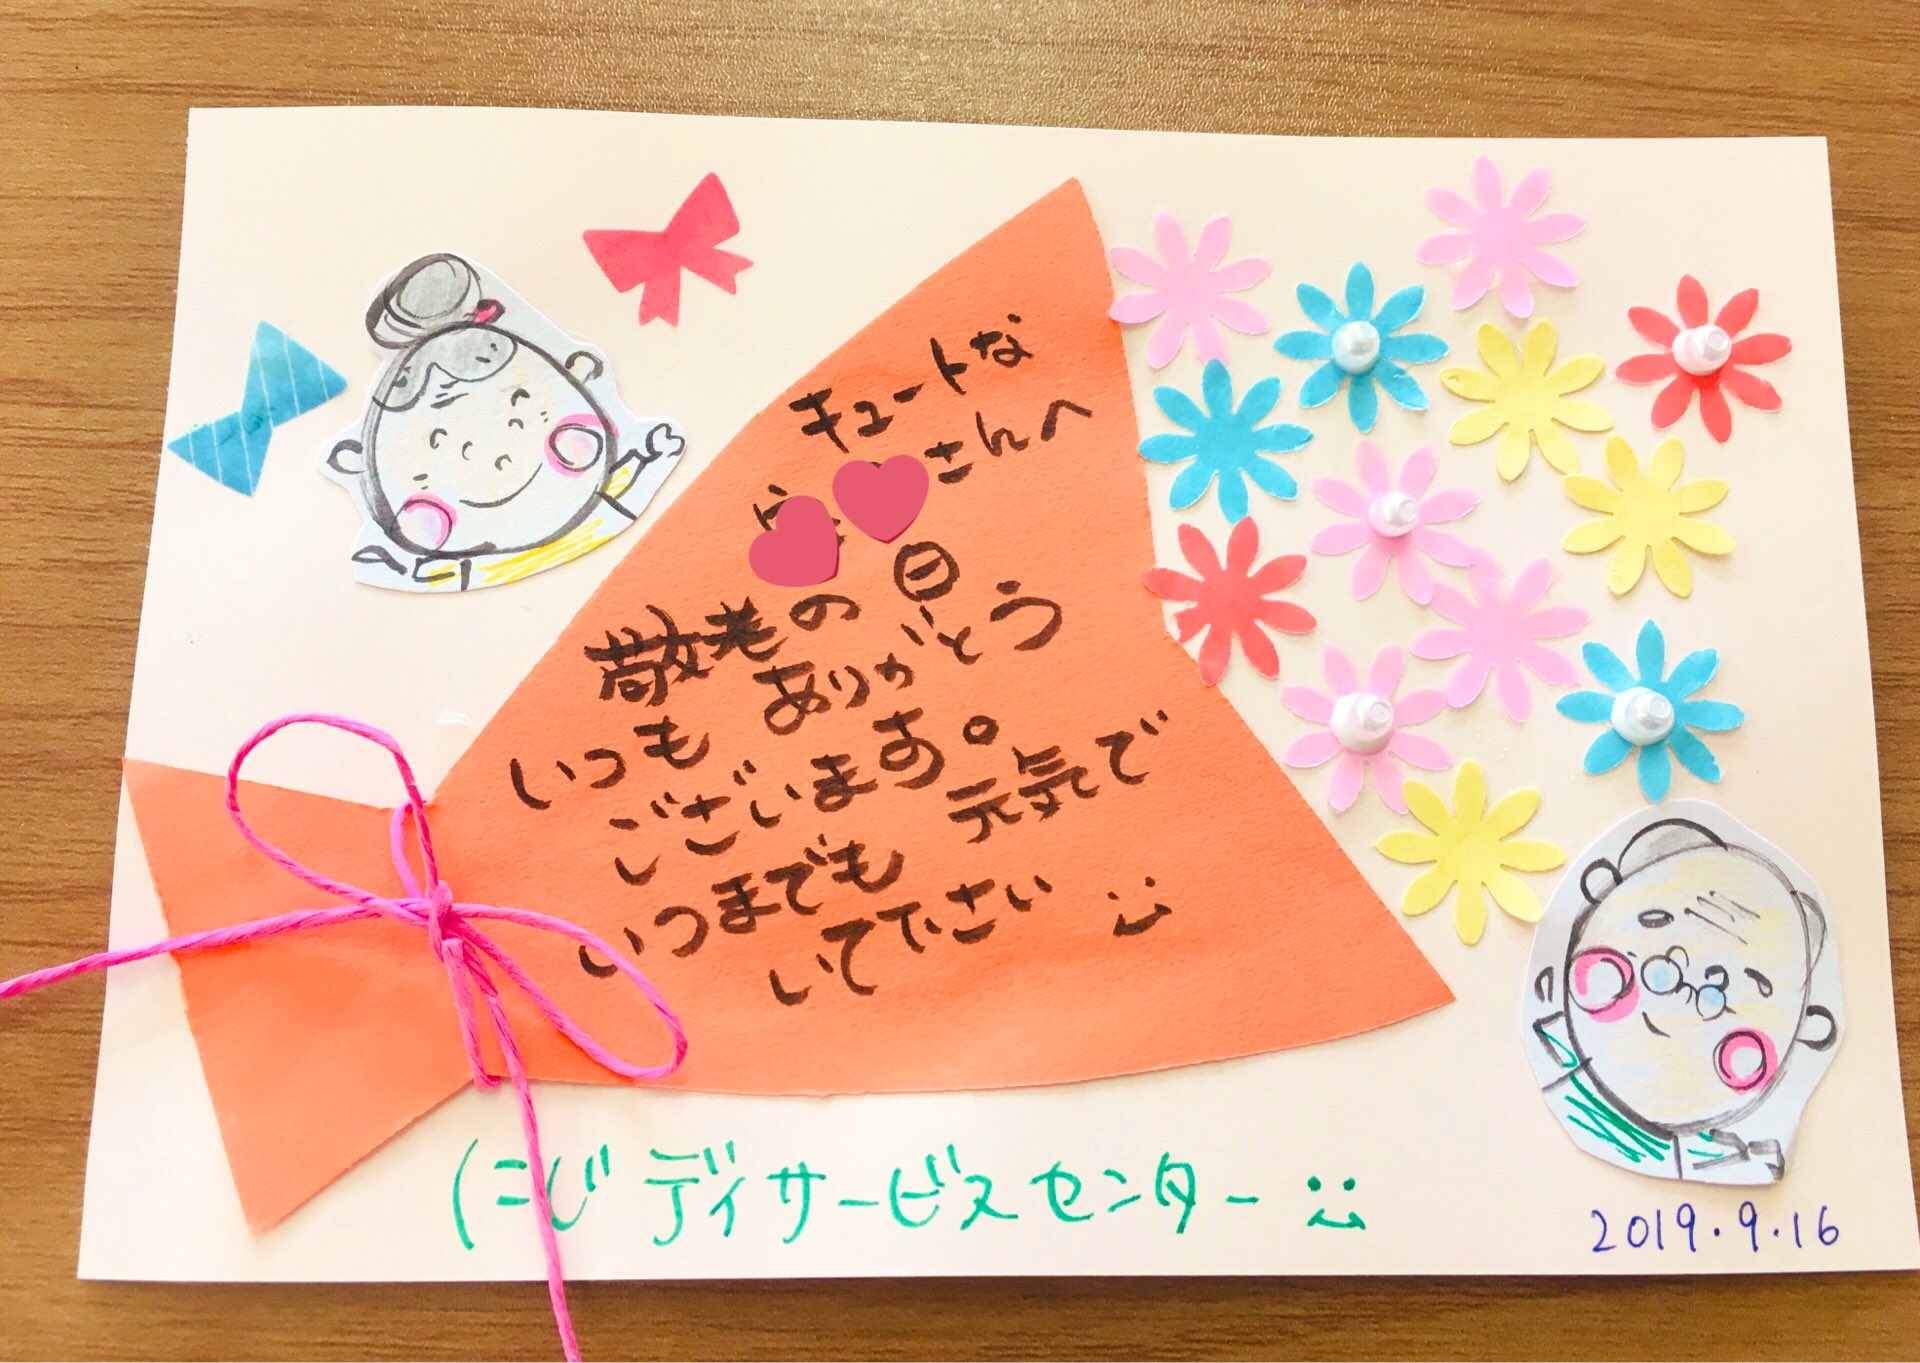 キュートな
さんへ
敬老の日
いつもありがとう
ございます。
いつまでも元気で
いて下さい
にじデイサービスセンター
2019.9.16